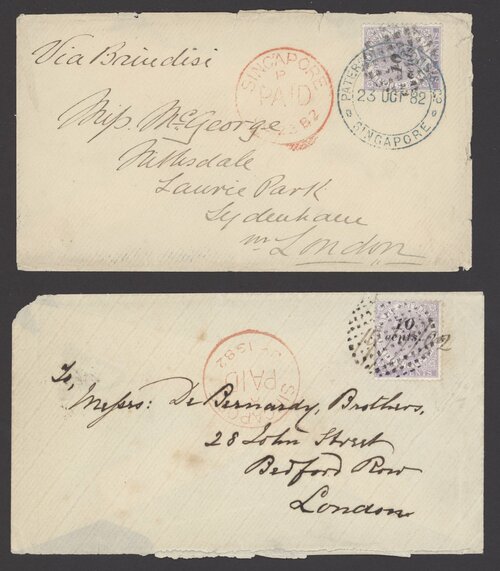 Via Brindisi
SINGAPORE
P
PAID
82
23 OCT 82
SINGAPORE
Miss McGeorge
Nithsdale
Laurie Park
Sydenham
nr London
10
cents
PAID
To
Messrs: De Bernardy, Brothers,
28 John Street
Bedford Row
London